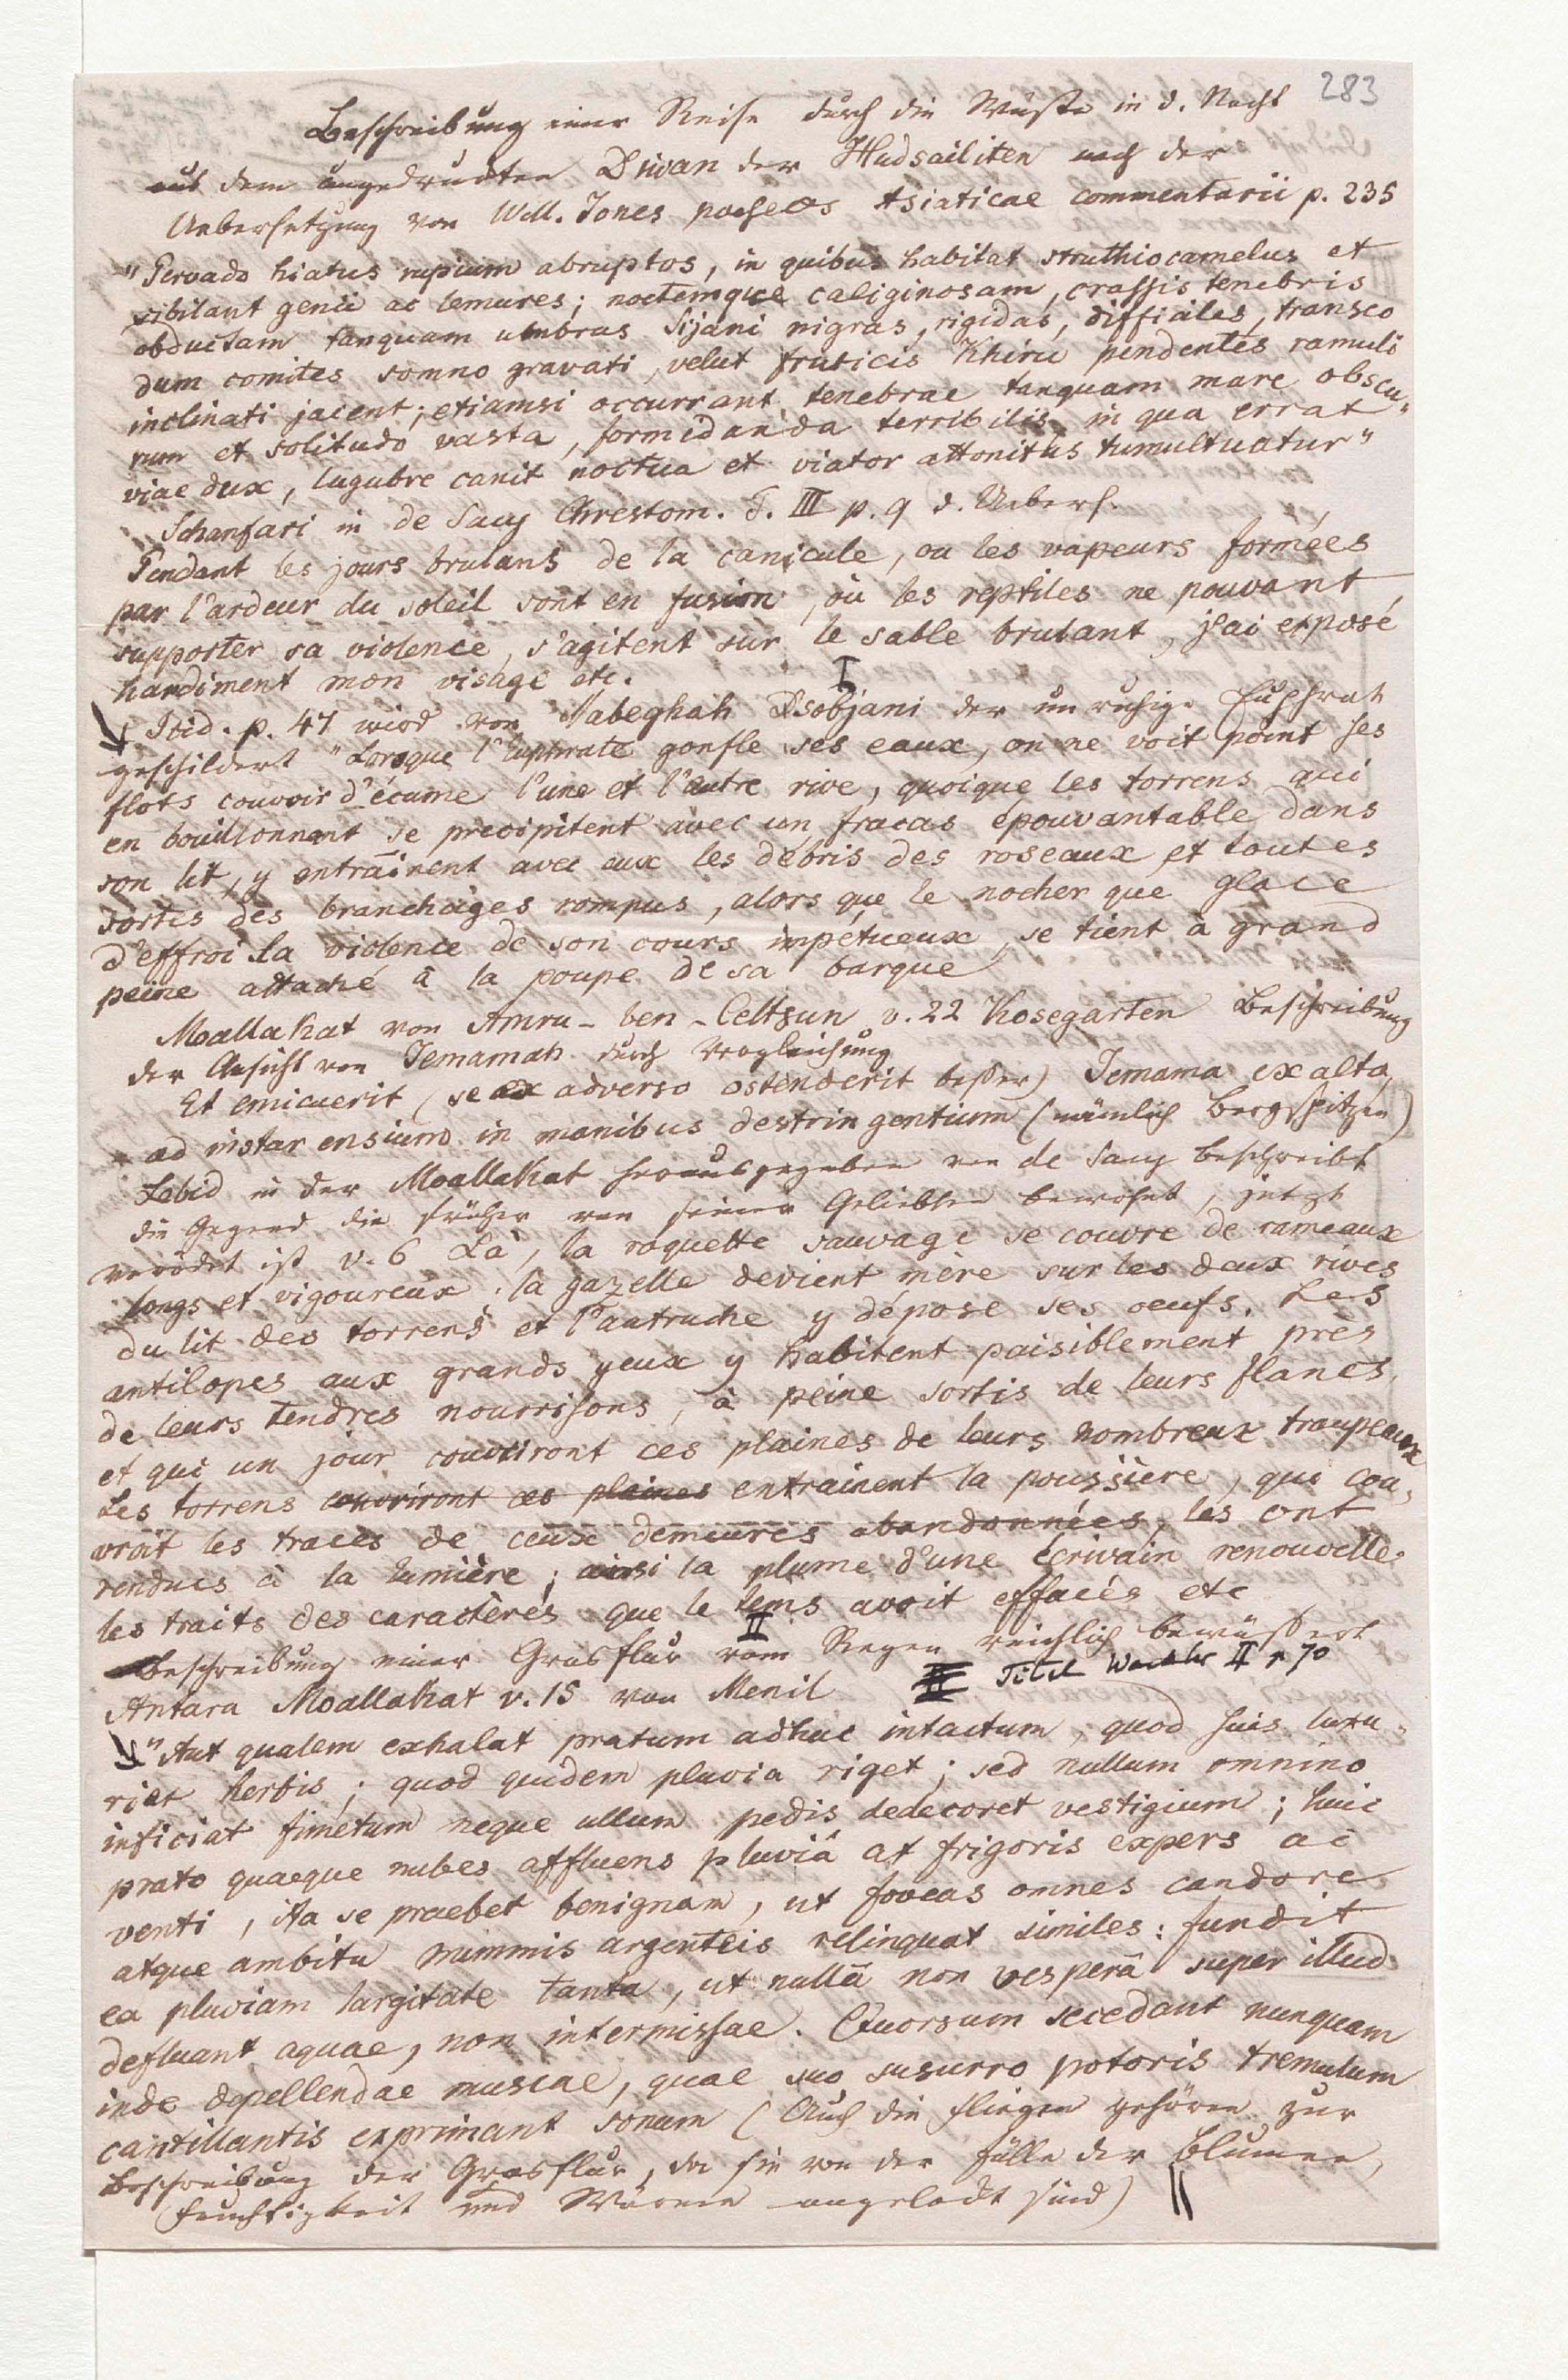 283
Beschreibung einer Reise durch die Wüste in d. Nacht
aus dem ungedruckten Diwan der Hudsailiten nach der
Uebersetzung von Will. Jones poeseos Asiaticae commentarii p. 235
"Pervado hiatus rupium abruptos, in quibus habitat struthiocamelus et
sibilant genii ac lemures; noctemque caliginosam, crassis tenebris
obductam tanquam umbras Sijani nigras, rigidas, difficiles, transeo
dum comites somno gravati, velut fruticis Khirii pendentes ramuli
inclinati jacent; etiamsi occurrant tenebrae tanquam mare obscu-
rum et solitudo vasta, formidanda terribilis in qua errat
viae dux, lugubre canit noctua et viator attonitus tumultuatur"
Schanfari in de Sacy Chrestom. T. III p. 9 d. Uebers.
Pendant les jours brulans de la canicule, ou les vapeurs formées
par l'ardeur du soleil sont en fusion, où les reptiles ne pouvant
supporter sa violence, s'agitent sur le sable brulant, j'ai exposé
hardiment mon visage etc.
I
Ibid. p. 47 wird von Nabeghah Dsobjani der unruhige Euphrat
geschildert "Lorsque l'Euphrate gonfle ses eaux, on ne voit point ses
flots couvrir d'écume l'une et l'autre rive, quoique les torrens qui
en bouillonnant se precipitent avec un fracas épouvantable dans
son lit, y entraînent avec eux les débris des roseaux et toutes
sortes des branchages rompus, alors que le nocher que glace
d'effroi la violence de son cours impétueux, se tient à grand
peine attaché à la poupe de sa barque
Moallakat von Amru-ben-Celtsun v. 22 Kosegarten Beschreibung
der Ansicht von Jemamah durch Vergleichung
Et emicuerit (se ex adverso ostenderit besser) Jemama exalta
ad instar ensium in manibus destringentium (nämlich Bergspitzen)
Lebid in der Moallakat herausgegeben von de Sacy beschreibt
die Gegend die früher von seiner Geliebten bewohnt, jetzt
verödet ist v. 6 Là, la roquette sauvage se couvre de rameaux
longs et vigoureux. la gazelle devient mère sur les deux rives
du lit des torrens et l'autruche y dépose ses oeufs. Les
antilopes aux grands yeux y habitent paisiblement près
de leurs tendres nourrisons, à peine sortis de leurs flancs
et qui un jour couvriront ces plaines de leurs nombreux troupeaux
Les torrens couvriront ces plaines entrainent la poussière, qui cou-
vrait les traces de ceux demeures abandonnées, les ont
rendues à la lumière; ainsi la plume d'une écrivain renouvelle
les traits des caractères que le tems avoit effacés etc
II
Beschreibung einer Grasflur vom Regen reichlich bewässert
Antara Moallakat v. 15 von Menil II Titel II p 70
"Aut qualem exhalat pratum adhuc intactum, quod suis luxu-
riet herbis; quod quidem pluvia riget; sed nullum omnino
inficiat fimetum neque ullum pedis dedecoret vestigium; huic
prato quaeque nubes affluens pluviâ at frigoris expers ac
venti, ita se praebet benignam, ut foveas omnes candore
atque ambitu nummis argenteis relinquat similes: fundit
ea pluviam largitate tanta, ut nullâ non vesperâ super illud
defluant aquae, non intermissae. Quorsum secedant nunquam
inde depellendae muscae, quae suo susurro potoris tremulum
cantillantis exprimant sonum (Auch die Fliegen gehören zur
Beschreibung der Grasflur, da sie von der Fülle der Blumen,
Feuchtigkeit und Wärme angelockt sind)